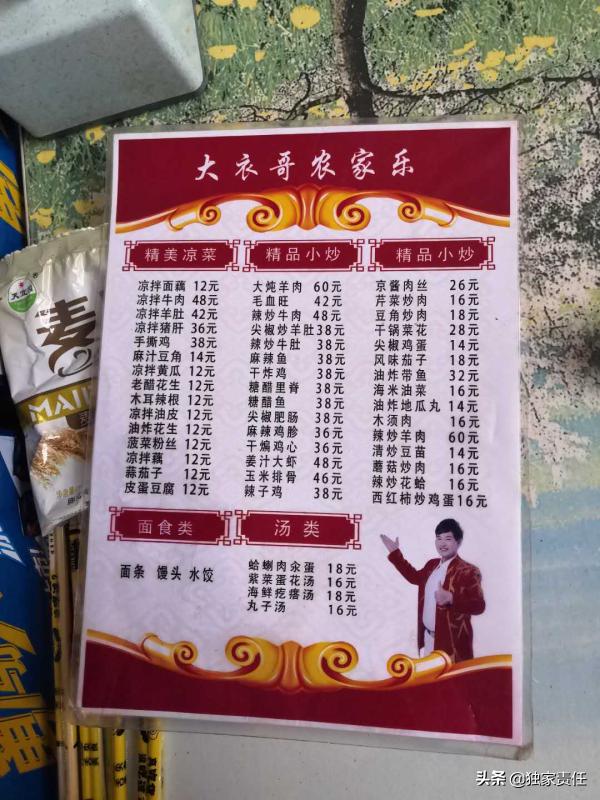 大衣哥农家乐
精美凉菜
凉拌面藕 12元
凉拌牛肉 48元
凉拌羊肚 42元
凉拌猪肝 36元
手撕鸡 38元
麻汁豆角 14元
凉拌黄瓜 12元
老醋花生 12元
木耳辣根 12元
凉拌油皮 12元
油炸花生 12元
菠菜粉丝 12元
凉拌藕 12元
蒜茄子 12元
皮蛋豆腐 12元
精品小炒
大炖羊肉 60元
毛血旺 42元
辣炒牛肉 48元
尖椒炒羊肚38元
辣炒牛肚 38元
麻辣鱼 38元
干炸鸡 38元
糖醋里脊 38元
糖醋鱼 38元
尖椒肥肠 38元
麻辣鸡胗 36元
干煸鸡心 36元
姜汁大虾 48元
玉米排骨 46元
辣子鸡 38元
精品小炒
京酱肉丝 26元
芹菜炒肉 16元
豆角炒肉 18元
干锅菜花 28元
尖椒鸡蛋 14元
风味茄子 18元
油炸带鱼 32元
海米油菜 16元
油炸地瓜丸 14元
木须肉 16元
辣炒羊肉 60元
清炒豆苗 14元
蘑菇炒肉 16元
辣炒花蛤 16元
西红柿炒鸡蛋16元
面食类
面条 馒头 水饺
汤类
蛤蜊肉汆蛋 18元
紫菜蛋花汤 16元
海鲜疙瘩汤 18元
丸子汤 16元
麦
MAI
头条 @独家责任